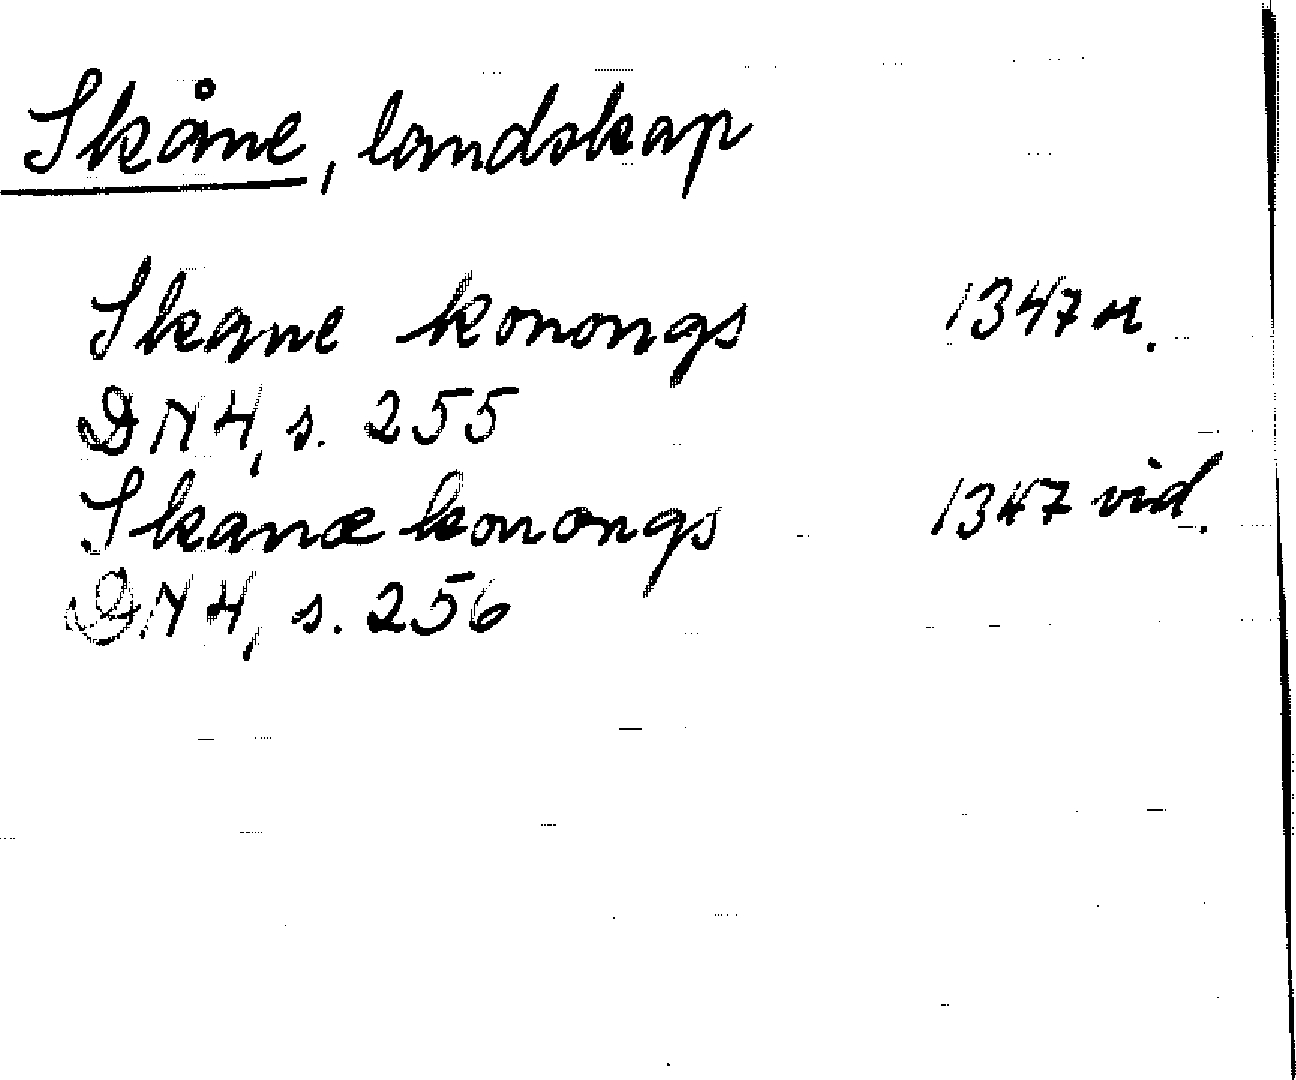 Skåne, landskap
Skane konongs 1347 u.
DN 4, s. 255
Skanæ konongs 1347 vid.
DN 4, s. 256